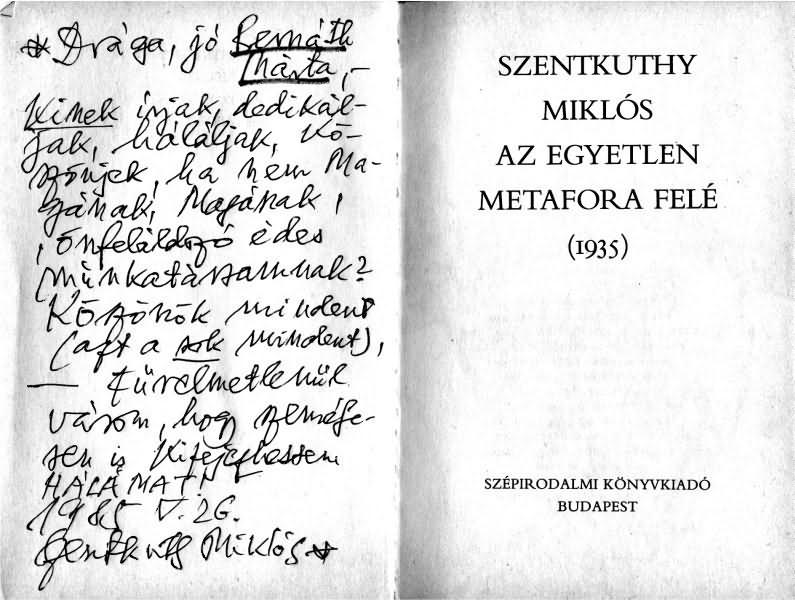 * Drága, jó Bernáth
Márta, –
Kinek írjak, dedikál-
jak, háláljak, kö-
szönjek, ha nem Ma-
gának, Magának,
, önfeláldozó édes
munkatársamnak?
Köszönök mindent
(azt a sok mindent),
— türelmetlenül
várom, hogy szemé­lye-
sen is kifejezhessem
HÁLÁMAT!!
1985 V. 26.
Szentkuthy Miklós *
SZENTKUTHY
MIKLÓS
AZ EGYETLEN
METAFORA FELÉ
(1935)
SZÉPIRODALMI KÖNYVKIADÓ
BUDAPEST